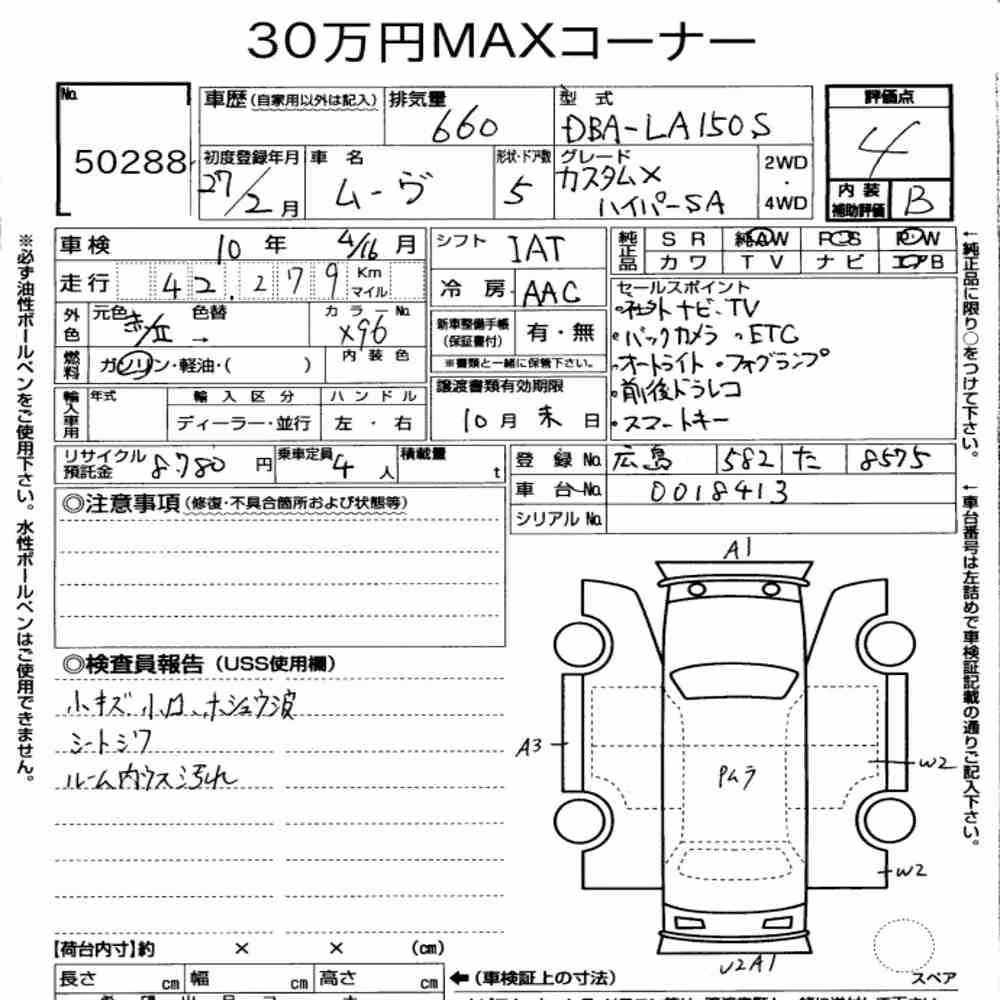 30万円MAXコーナー
No. 50288
車歴(自家用以外は記入) 排気量 660 型式 DBA-LA150S
評価点 4
初度登録年月 27/2月 車名 ムーヴ 形状・ドア数 5 グレード カスタムX ハイパーSA 2WD・4WD
内装補助評価 B
※必ず油性ボールペンをご使用下さい。水性ボールペンはご使用できません。
車検 10年 4/16月
走行 42,279 Km マイル
外色 元色 赤/II 色替 → カラーNo. X96
燃料 ガソリン・軽油・( ) 内装色
輸入車用 年式 輸入区分 ディーラー・並行 ハンドル 左・右
シフト IAT
冷房 AAC
新車整備手帳(保証書付) 有・無
※書類と一緒に保管下さい。
譲渡書類有効期限
10月末日
純正品 SR 純AW PS PW
カワ TV ナビ エアB
セールスポイント
・社外ナビ、TV
・バックカメラ ・ETC
・オートライト ・フォグランプ
・前後ドラレコ
・スマートキー
←純正品に限り○をつけて下さい。
←車台番号は左詰めで車検証記載の通りご記入下さい。
リサイクル預託金 8,780円 乗車定員 4人 積載量 t
登録No. 広島 582 た 8575
車台No. 0018413
シリアルNo.
◎注意事項(修復・不具合箇所および状態等)
◎検査員報告(USS使用欄)
小キズ、小凹、ホシュウ波
シートシワ
ルーム内ウス汚れ
A1
A3
Pムラ
W2
W2
U2A1
スペア
【荷台内寸】約 × × (cm)
長さ cm 幅 cm 高さ cm
←(車検証上の寸法)